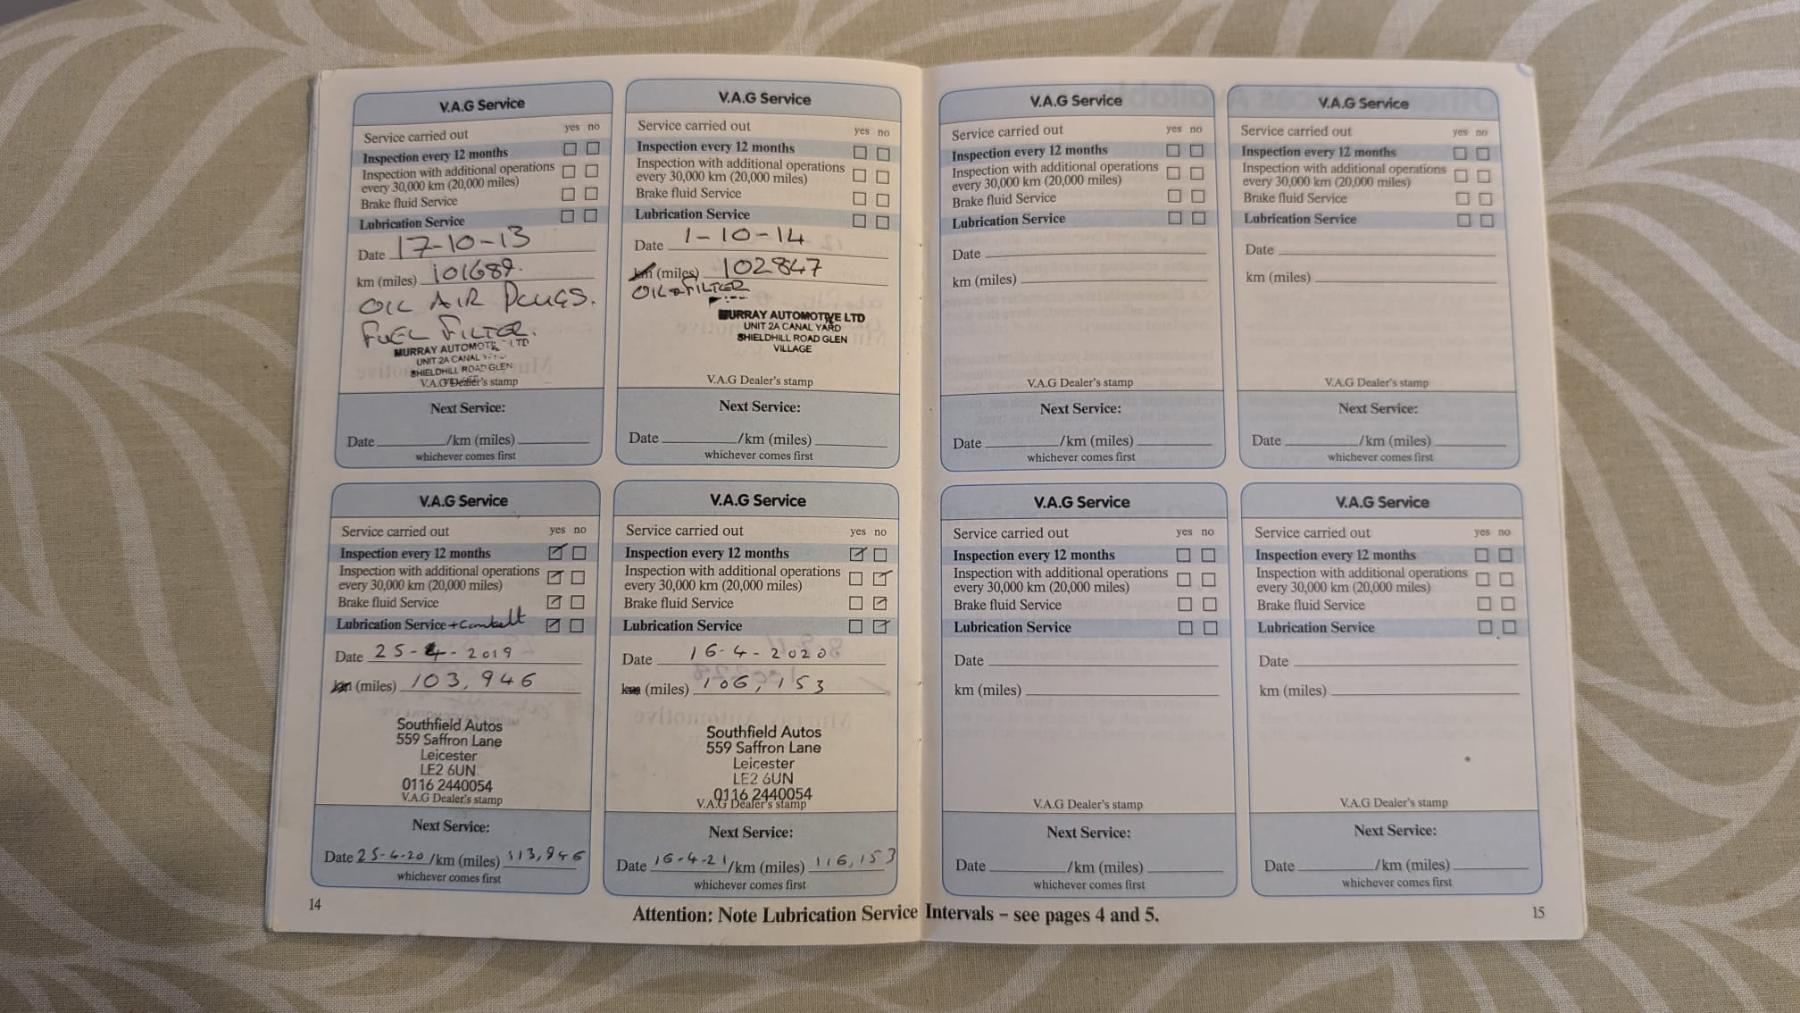 V.A.G Service
Service carried out yes no
Inspection every 12 months
Inspection with additional operations
every 30,000 km (20,000 miles)
Brake fluid Service
Lubrication Service
Date 17-10-13
km (miles) 101689.
OIL AIR PLUGS.
FUEL FILTER.
MURRAY AUTOMOTIVE LTD
UNIT 2A CANAL
SHIELDHILL ROAD GLEN
V.A.G Dealer's stamp
Next Service:
Date /km (miles)
whichever comes first
V.A.G Service
Service carried out yes no
Inspection every 12 months
Inspection with additional operations
every 30,000 km (20,000 miles)
Brake fluid Service
Lubrication Service
Date 1-10-14
km (miles) 102847
OIL + FILTER
MURRAY AUTOMOTIVE LTD
UNIT 2A CANAL YARD
SHIELDHILL ROAD GLEN
VILLAGE
V.A.G Dealer's stamp
Next Service:
Date /km (miles)
whichever comes first
V.A.G Service
Service carried out yes no
Inspection every 12 months
Inspection with additional operations
every 30,000 km (20,000 miles)
Brake fluid Service
Lubrication Service + Cambelt
Date 25-4-2019
km (miles) 103,946
Southfield Autos
559 Saffron Lane
Leicester
LE2 6UN
0116 2440054
V.A.G Dealer's stamp
Next Service:
Date 25-4-20 /km (miles) 113,946
whichever comes first
V.A.G Service
Service carried out yes no
Inspection every 12 months
Inspection with additional operations
every 30,000 km (20,000 miles)
Brake fluid Service
Lubrication Service
Date 16-4-2020
km (miles) 106,153
Southfield Autos
559 Saffron Lane
Leicester
LE2 6UN
0116 2440054
V.A.G Dealer's stamp
Next Service:
Date 16-4-21 /km (miles) 116,153
whichever comes first
14
V.A.G Service
Service carried out yes no
Inspection every 12 months
Inspection with additional operations
every 30,000 km (20,000 miles)
Brake fluid Service
Lubrication Service
Date
km (miles)
V.A.G Dealer's stamp
Next Service:
Date /km (miles)
whichever comes first
V.A.G Service
Service carried out yes no
Inspection every 12 months
Inspection with additional operations
every 30,000 km (20,000 miles)
Brake fluid Service
Lubrication Service
Date
km (miles)
V.A.G Dealer's stamp
Next Service:
Date /km (miles)
whichever comes first
V.A.G Service
Service carried out yes no
Inspection every 12 months
Inspection with additional operations
every 30,000 km (20,000 miles)
Brake fluid Service
Lubrication Service
Date
km (miles)
V.A.G Dealer's stamp
Next Service:
Date /km (miles)
whichever comes first
V.A.G Service
Service carried out yes no
Inspection every 12 months
Inspection with additional operations
every 30,000 km (20,000 miles)
Brake fluid Service
Lubrication Service
Date
km (miles)
V.A.G Dealer's stamp
Next Service:
Date /km (miles)
whichever comes first
Attention: Note Lubrication Service Intervals – see pages 4 and 5.
15